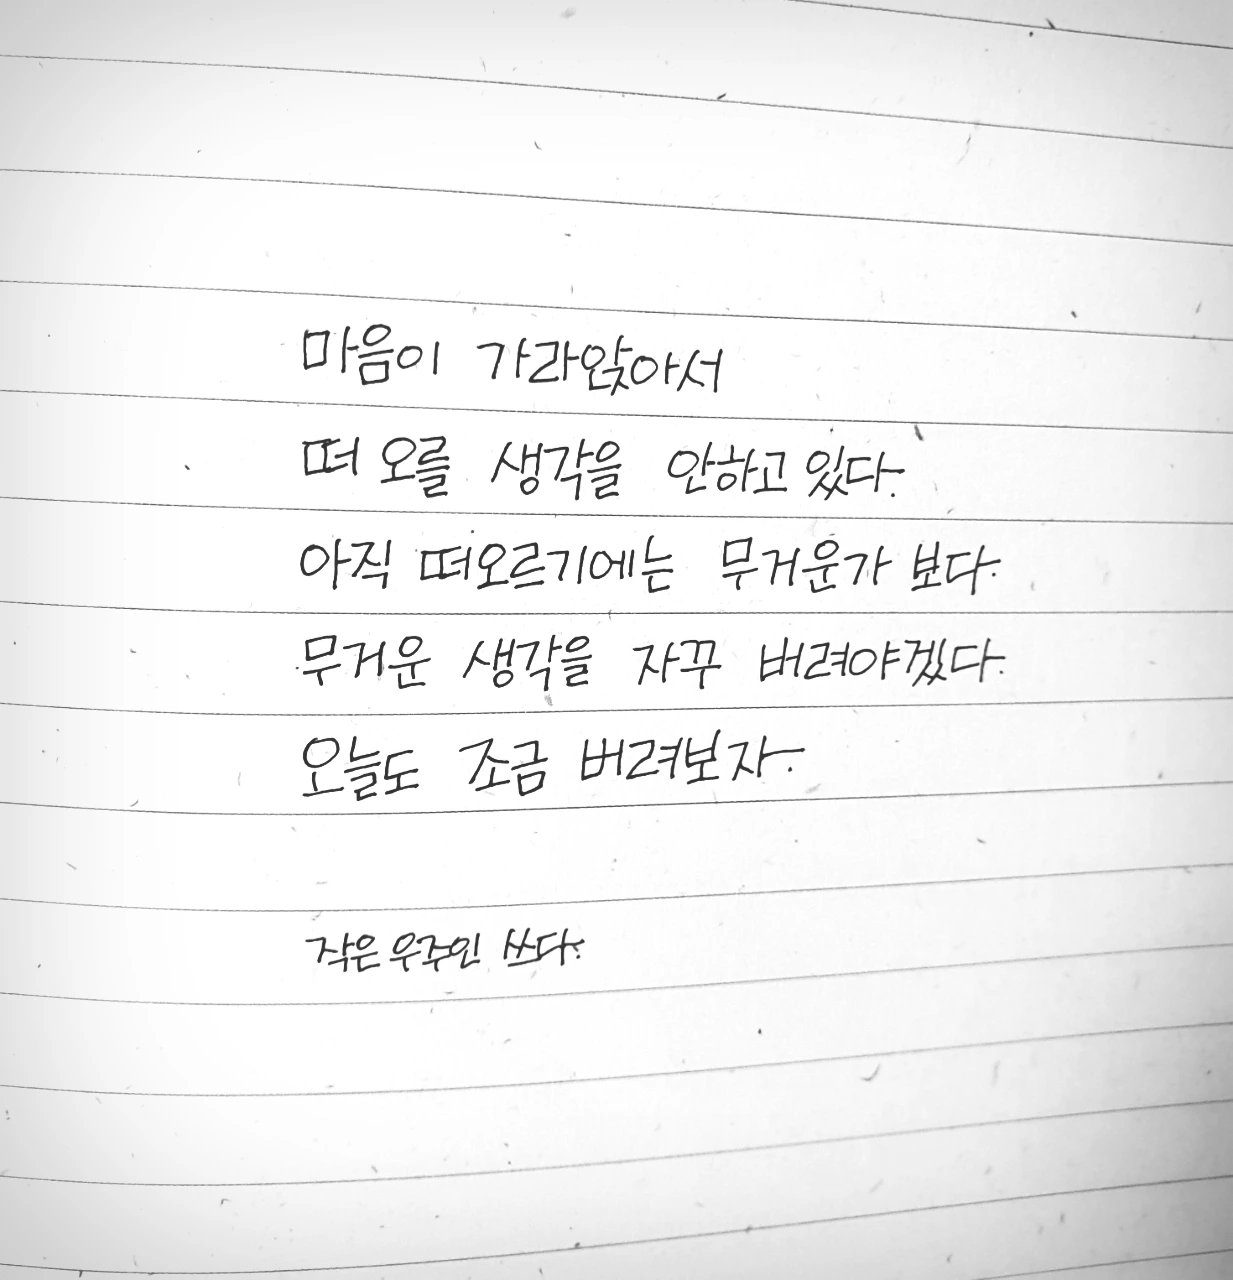 마음이 가라앉아서
떠 오를 생각을 안하고 있다.
아직 떠오르기에는 무거운가 보다.
무거운 생각을 자꾸 버려야겠다.
오늘도 조금 버려보자.
작은 우주인 쓰다.